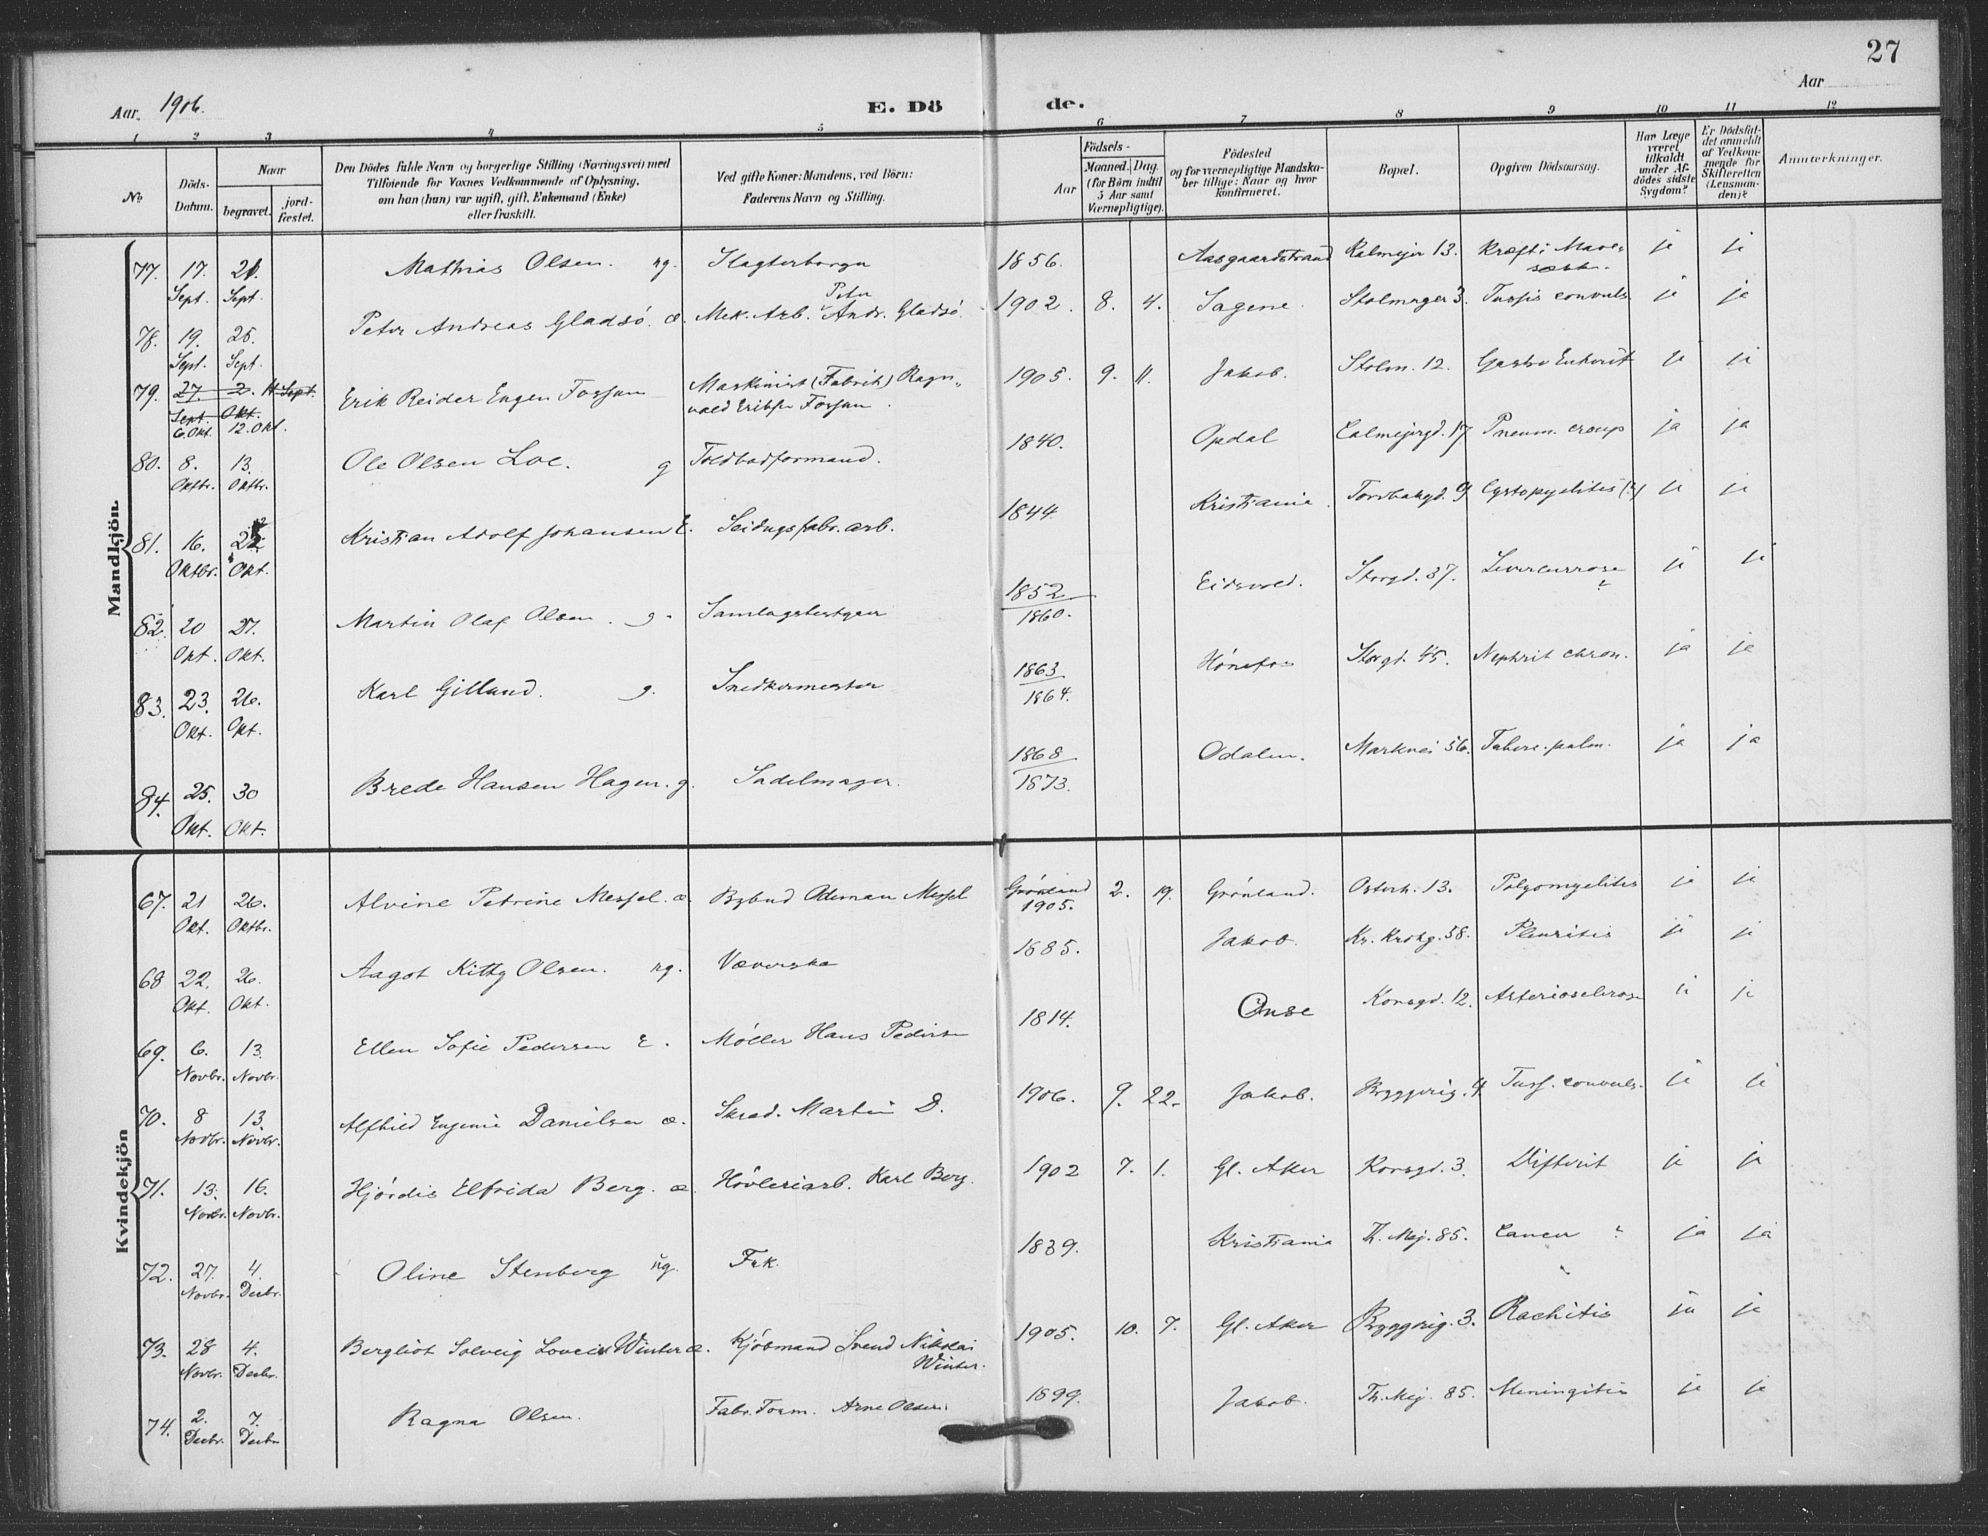 27
Aar 1906.
E. Dö de.
Aar
1 2 3 4 5 6 7 8 9 10 11 12
No
Döds-Datum.
Naar
begravet.
jord-fæstet.
Den Dödes fulde Navn og borgerlige Stilling (Næringsvei) med
Tilföiende for Voxnes Vedkommende af Oplysning,
om han (hun) var ugift, gift, Enkemand (Enke)
eller fraskilt.
Ved gifte Koner: Mandens, ved Börn:
Faderens Navn og Stilling.
Födsels-
Aar
Maaned. Dag.
(for Börn indtil
5 Aar samt
Værnepligtige).
Födested
og for værnepligtige Mandska-
ber tillige: Naar og hvor
konfirmeret.
Bopæl.
Opgiven Dödsaarsag.
Har Læge
været
tilkaldt
under Af-
dödes sidste
Sygdom?
Er Dödsfal-
det anmeldt
af Vedkom-
mende for
Skifteretten
(Lensman-
den)?
Anmærkninger.
Mandkjön.
77. 17. Sept. 21. Sept. Mathias Olsen. ug. Slagterborger 1856. Aasgaardstrand Kalmejer 13. Kræft i Mave- ja ja
78. 19. Sept. 25. Sept. Peter Andreas Gladsö. æ. Mek. Arb. Peter Andr. Gladsö. 1902. 8. 4. Sagene. Stolmager 3. Tussis convuls. ja ja
79. 27. Sept. 2. Okt. 14 Sept. 6. Okt. 12. Okt. Erik Reider Eugen Fossum Maskinist (Fabrik) Ragn-
vald Eriksen Fossum. 1905. 9. 11. Jakob. Stolm. 12. Gastro Enterit ja ja
80. 8. Oktbr. 13. Oktbr. Ole Olsen Loe. g Toldbodformand. 1840. Opdal Calmejergd. 17 Pneum. croup ja ja
81. 16. Oktbr. 22 Okt. Kristian Adolf Johansen E. Seildugsfabr. arb. 1844. Kristiania. Torvbakgd. 9 Cystopyelitis (?) ja ja
82. 20 Okt. 27. Okt. Martin Olaf Olsen. g. Samlagsbestyrer 1852 1860. Eidsvold. Storgd. 37. Levercirrose ? ja ja
83. 23. Okt. 26. Okt. Karl Gilland. g. Snedkermester 1863 1864. Hönefos Storgd. 45. Nephrit chron. ja ja
84. 25. Okt. 30 Okt. Brede Hansen Hagen. g. Sadelmager. 1868 1873. Odalen. Markvei 56. Tuberc. pulm. ja ja
Kvindekjön
67. 21 Okt. 26. Oktbr. Alvine Petrine Messel. æ. Bybud Odeman Messel Grönland 1905. 2. 19. Grönland. Osterh. 13. Polyomyelites ja ja
68 22. Okt. 26. Okt. Aagot Kitty Olsen. ug. Væverske 1885. Jakob. Kr. Krohg. 58. Pleuritis ja ja
69. 6. Novbr. 13. Novbr. Ellen Sofie Pedersen E. Möller Hans Pedersen 1814. Onsø Korsgd. 12. Arterioselerose ja ja
70. 8 Novbr. 13. Novbr. Alfhild Eugenie Danielsen æ. Skræd. Martin D. 1906. 9. 22. Jakob. Byggerig. 4 Tuss. convuls. ja ja
71. 13. Novbr. 16. Novbr. Hjördis Elfrida Berg. æ. Hövleriarb. Karl Berg. 1902 7. 1. Gl. Aker Korsgd. 3. Difterit ja ja
72. 27. Novbr. 4. Decbr. Oline Stenberg ug. Frk. 1839. Kristiania Th. Mej. 85. Cancer ? ja ja
73. 28 Novbr. 4. Decbr. Bergliot Solveig Winter æ. Kjöbmand Svend Nikolai
Winter. 1905. 10. 7. Gl. Aker Byggerig. 3. Rachitis ja ja
74. 2. Decbr. 7. Decbr Ragna Olsen. Fabr. Form. Arne Olsen. 1899. Jakob. Th. Mej. 85. Meningitis ja ja